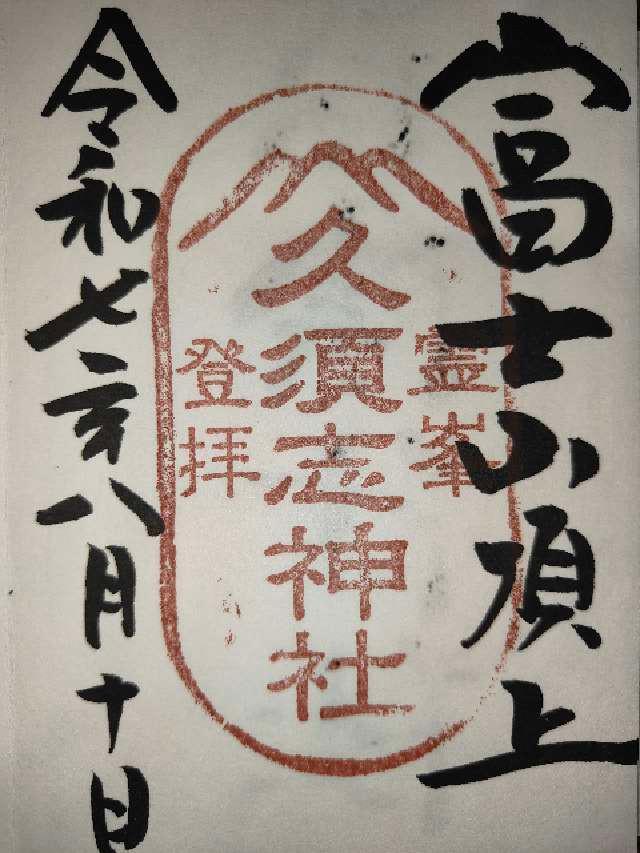 富士山頂上
霊峯
久須志神社
登拝
令和七年八月十日